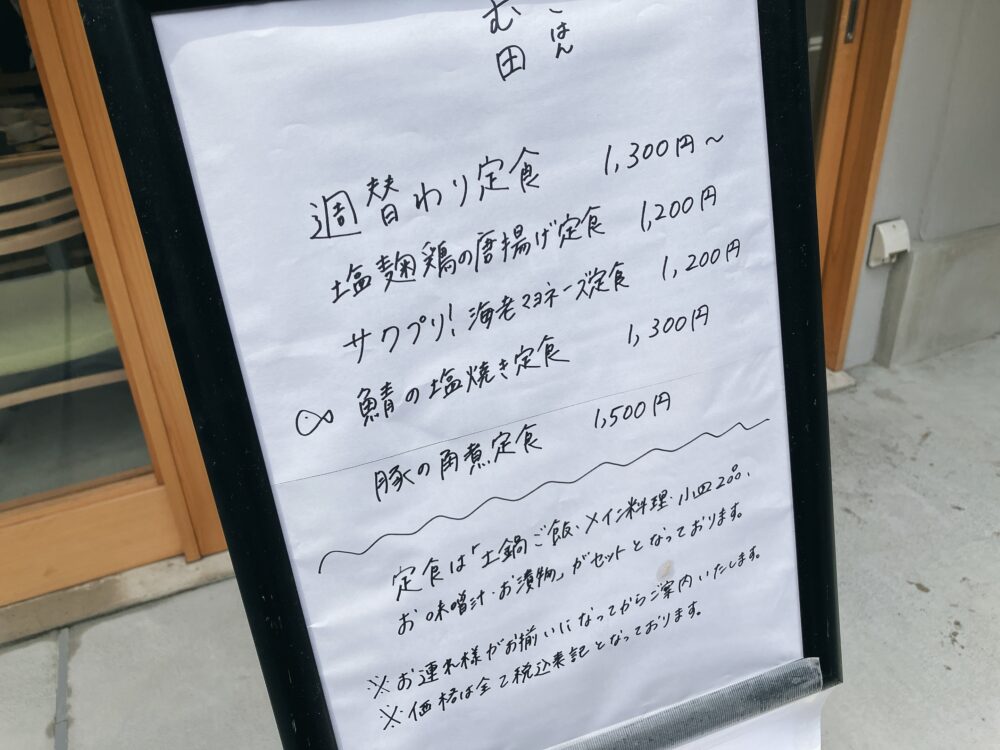 ごはん
む田
週替わり定食 1,300円～
塩麹鶏の唐揚げ定食 1,200円
サクプリ!海老マヨネーズ定食 1,200円
鯖の塩焼き定食 1,300円
豚の角煮定食 1,500円
定食は「土鍋ご飯・メイン料理・小皿2品、
お味噌汁・お漬物」がセットとなっております。
※お連れ様がお揃いになってからご案内いたします。
※価格は全て税込表記となっております。